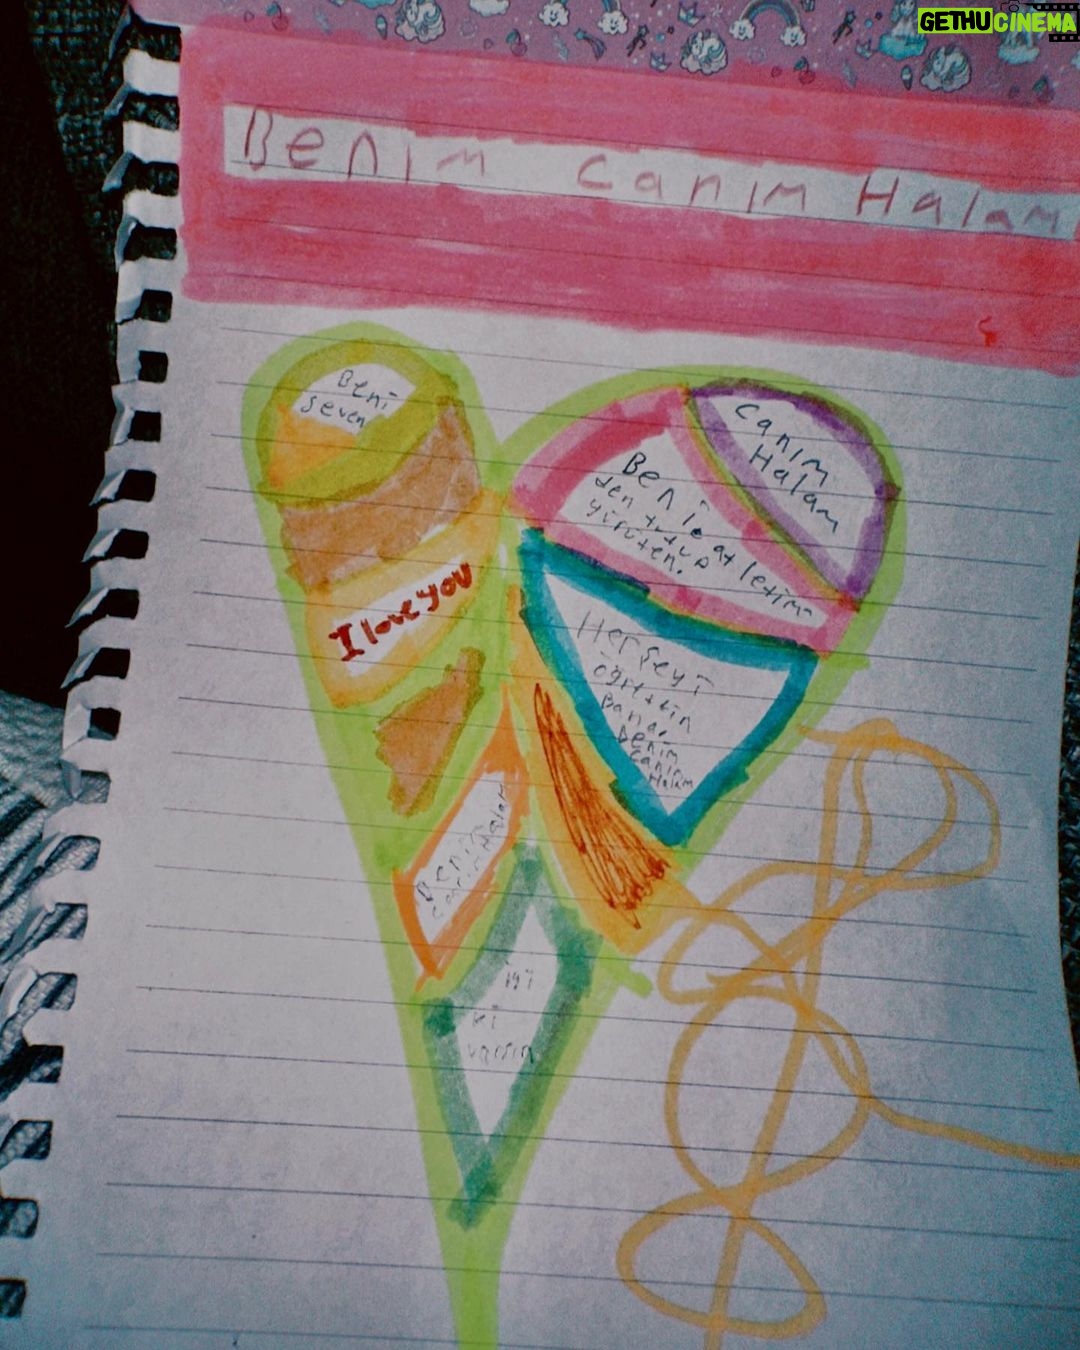 GETHUCINEMA
Benim canım Halam
Beni
seven
canım
Halam
Beni
den tutup
yürüten.
I love you
Herşeyi
öğrettin
Bana.
Benim
canım
Halam
Benim
canım Halam
iyi
ki
varsın